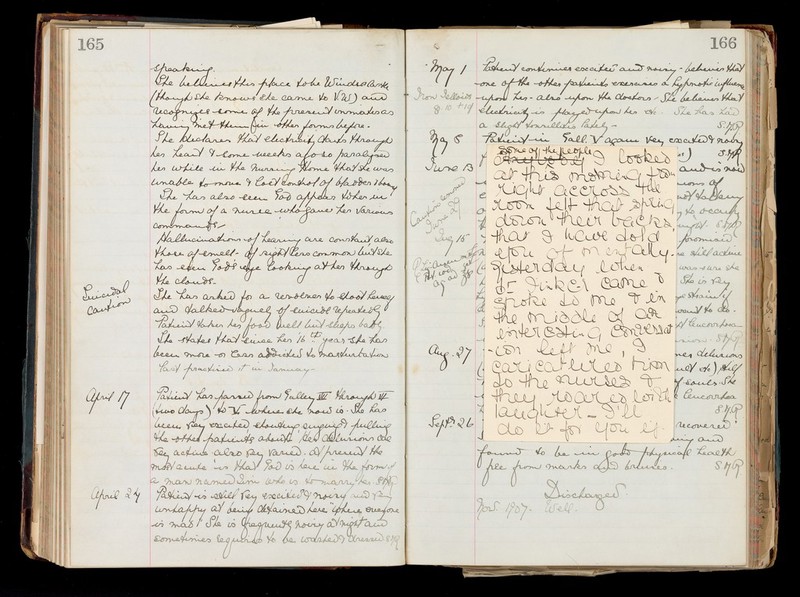 165
speaking.
She believes this place to be Windsor Castle
(though she knows she came to V.W.) and
recognizes some of the present inmates as
having met them in other forms before.
She declares that electricity darts through
her heart & some weeks ago so paralysed
her while in the Nursing Home that she was
unable to move & lost control of bladder & bowel
She has also seen God appear to her in
the form of a nurse who gave her various
commands
Hallucinations of hearing are constant also
those of smell of sight less common but she
has seen God's eye looking at her through
the clouds.
Suicidal
caution
She has asked for a revolver to shoot herself
and talked vaguely of suicide repeatedly
Patient takes her food well but sleeps badly
She states that since her 16th year she has
been more or less addicted to masturbation
last practised it in January
April 17
Patient has passed from Gallery III through IV
(two days) to V where she now is. She has
been very excited shouting singing & pulling
the other patients about. Her delusions are
very active also very varied. At present the
most acute is that God is here in the form of
a man named Jim who is to marry her
April 24
Patient is still very excited & noisy and very
unhappy at being detained here where everyone
is mad! She is frequently noisy at night and
sometimes requires to be washed & dressed
166
May 1
Patient continues excited and noisy - believes that
one of the other patients exercises a hypnotic influence
upon her - also upon the doctors - She believes that
electricity is played upon her. She has had
a slight tonsillitis lately -
May 8
Patient in Gall V again very excited & noisy
June 13
and is now
some of the people
looked
at this morning from
right accross the
room felt that spring
down their backs,
that I have told
you of mentally.
Yesterday when
Dr came &
spoke to me & in
the middle of an
interesting conversat
ion left me, I
caricatured him
to the nurses &
they roared with
laughter - I'll
do it for you if
Caution removed
promised
She is very
Aug. 27
delusions
Sept. 26
recovered
found to be in good physical health
free from marks and bruises.
Discharged
Nov. 1907. Well.